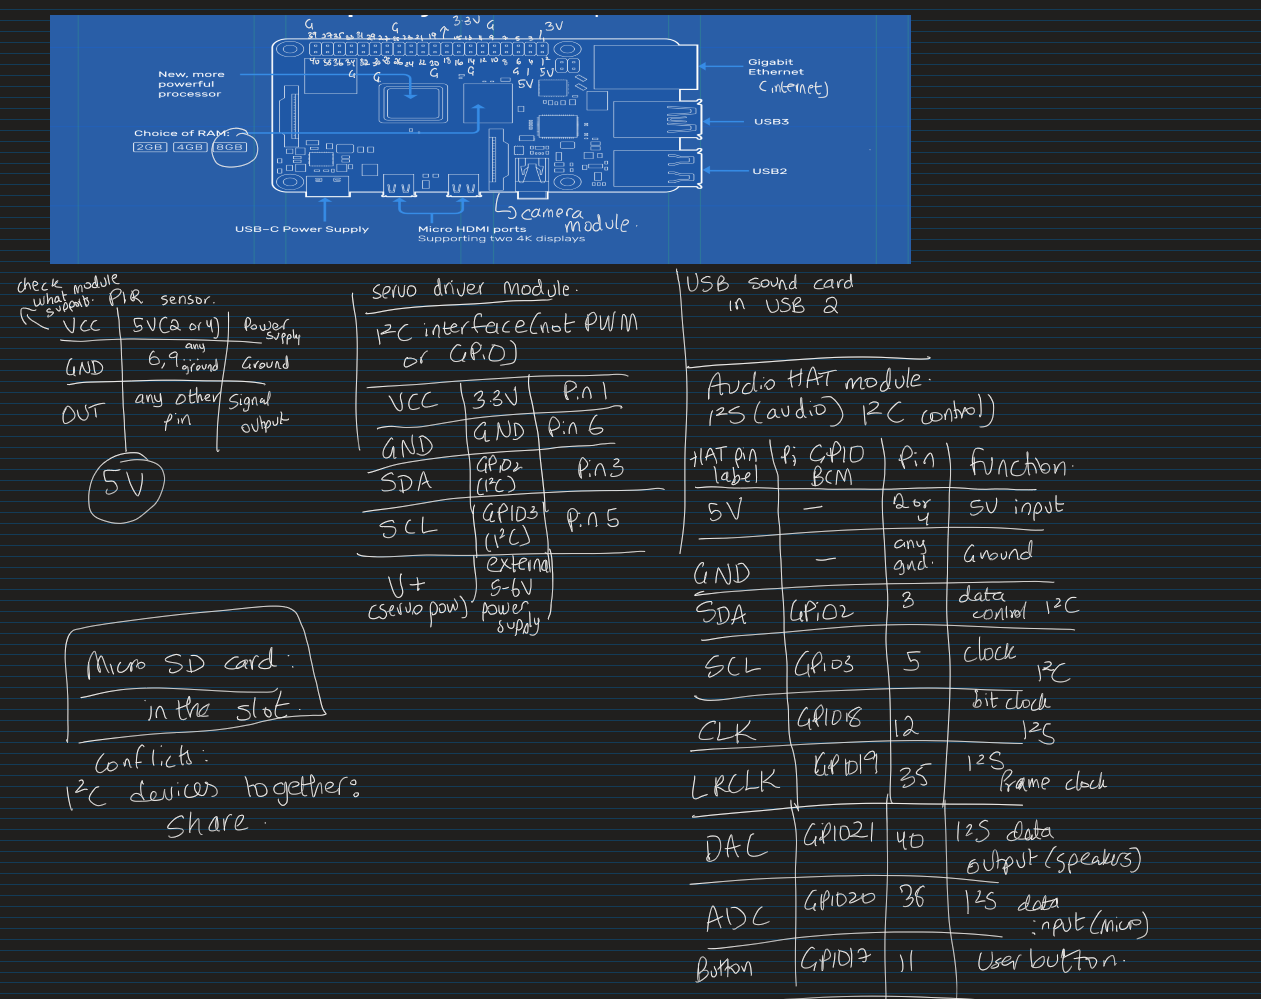 G G 3.3V G 3V
39 37 35 33 31 29 27 25 23 21 19 17 15 13 11 9 7 5 3 1
40 38 36 34 32 30 28 26 24 22 20 18 16 14 12 10 8 6 4 2
G G G G G 5V
5V
New, more
powerful
processor
Choice of RAM:
2GB 4GB 8GB
Gigabit
Ethernet
(internet)
USB3
USB2
USB-C Power Supply
Micro HDMI ports
Supporting two 4K displays
camera
module.
check module
what
support.
PIR sensor.
VCC 5V(2 or 4) Power supply
GND 6,9 any ground Ground
OUT any other pin Signal output
5V
Micro SD card:
in the slot.
Conflicts:
I²C devices together:
Share.
servo driver module.
I²C interface(not PWM
or GPIO)
VCC 3.3V Pin 1
GND GND Pin 6
SDA GPIO2 (I²C) Pin3
SCL GPIO3 (I²C) Pin 5
V+ (servo pow) external 5-6V power supply
USB sound card
in USB 2
Audio HAT module.
I²S (audio) I²C control)
HAT pin label Pi GPIO BCM Pin function.
5V – 2 or 4 5V input
GND – any gnd. Ground
SDA GPIO2 3 data control I²C
SCL GPIO3 5 clock I²C
CLK GPIO18 12 bit clock I²S
LRCLK GPIO19 35 I²S frame clock
DAC GPIO21 40 I²S data output (speakers)
ADC GPIO20 38 I²S data input (micro)
Button GPIO17 11 User button.